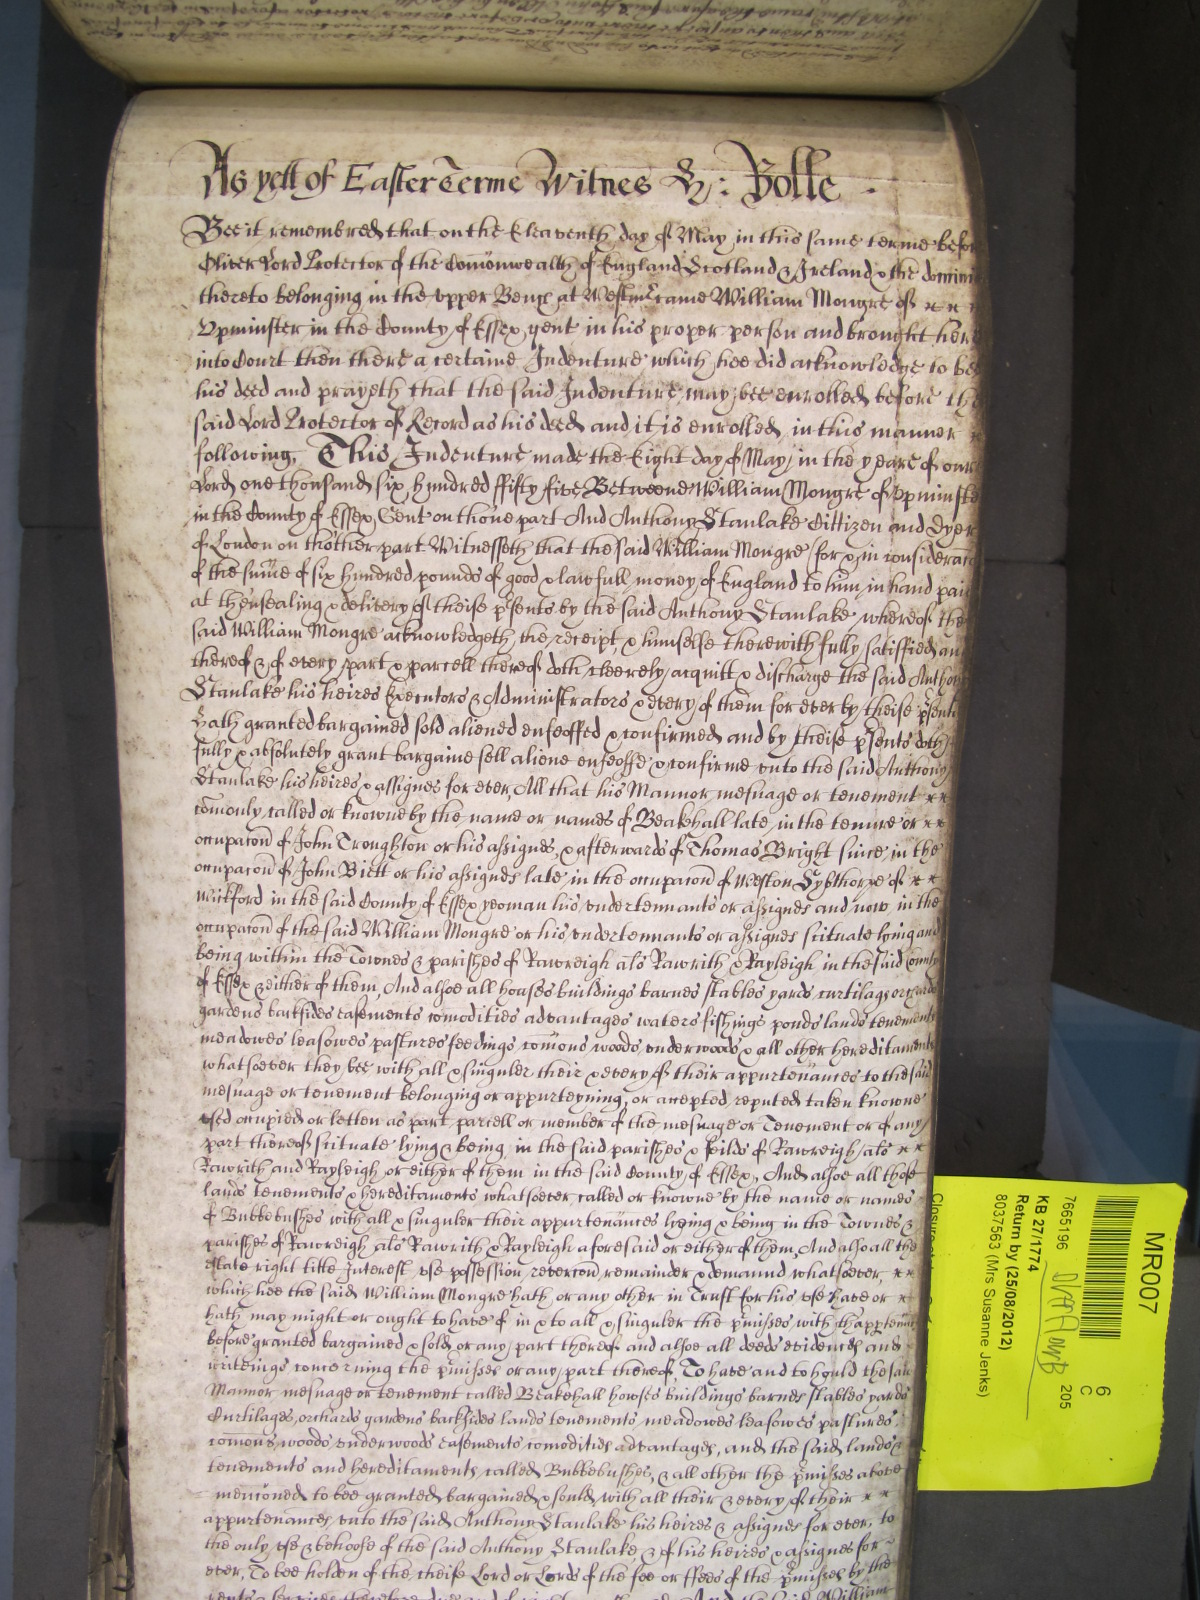 As yett of Easter Terme Witnes &c: Rolle
Bee it remembred that on the Eleaventh day of May in this same terme befor
Oliver Lord Protector of the Comonwealth of England Scotland & Ireland & the domini
thereto belonging in the upper Bench at Westmr came William Mongre of
Upminster in the County of Essex gent in his proper person and brought here
into Court then there a certaine Indenture which hee did acknowledge to bee
his deed and prayeth that the said Indenture may bee enrolled before the
said Lord Protector of Record as his deed and it is enrolled in this manner
following, This Indenture made the Eight day of May in the yeare of our
Lord one thousand six hundred fifty five Betweene William Mongre of Upminste
in the County of Essex Gent on thone part And Anthony Stanlake Cittizen and Dyer
of London on thother part Witnesseth that the said William Mongre for & in considerac
of the sume of six hundred pounds of good & lawfull money of England to him in hand paid
at thensealing & delivery of theise psents by the said Anthony Stanlake whereof the
said William Mongre acknowledgeth the receipt & himselfe therewith fully satisfied and
thereof & of every part & parcell thereof doth cleerely acquitt & discharge the said Anthony
Stanlake his heires Executors & Administrators & every of them for ever by theise psents
Hath granted bargained sold aliened enfeoffed & confirmed and by theise psents doth
fully & absolutely grant bargaine sell aliene enfeoffe & confirme unto the said Anthony
Stanlake his heires & assignes for ever, All that his Mannor mesuage or tenement
comonly called or knowne by the name or names of Beakehall late in the tenure or
occupacon of John Troughton or his assignes, & afterwards of Thomas Bright since in the
occupacon of John Biett or his assignes late in the occupacon of Weston of
Wickford in the said County of Essex yeoman his undertennants or assignes and now in the
occupacon of the said William Mongre or his undertennants or assignes scituate lying and
being within the Townes & parishes of Rawreigh als Rawrith & Rayleigh in the said County
of Essex & either of them, And alsoe all houses buildings barnes stables yards curtilages orchards
gardens backsides easements comodities advantages waters fishings ponds lands tenements
meadowes leasowes pastures feedings comons woods underwoods & all other hereditaments
whatsoever they bee with all & singuler their & every of their appurtenances to the said
mesuage or tenement belonging or apperteyning, or accepted reputed taken knowne
used occupied or letten as part parcell or member of the mesuage or Tenement or of any
part thereof scituate lying & being in the said parishes & feilds of Rawreigh als
Rawrith and Rayleigh or either of them in the said County of Essex, And alsoe all those
lands tenements & hereditaments whatsoever called or knowne by the name or names
of Bubbebushes with all & singuler their appurtenances lyeing & being in the Townes &
parishes of Rawreigh als Rawrith & Rayleigh aforesaid or either of them, And alsoe all the
estate right title Interest use possession revercon remainder & demaund whatsoever
which hee the said William Mongre hath or any other in Trust for his use have or
hath may might or ought to have of in & to all & singuler the pmisses with thappurten
before granted bargained & sold or any part thereof and alsoe all deeds evidences and
writeings concerning the pmisses or any part thereof, To have and to hould the said
Mannor mesuage or tenement called Beakehall howses buildings barnes stables yards
Curtilages, orchards gardens backsides lands tenements meadowes leasowes pastures
comons woods underwoods easements comodities advantages, and the said lands
tenements and hereditaments called Bubbebushes, & all other the pmisses above
mencioned to bee granted bargained & sould with all their & every of their
appurtenances unto the said Anthony Stanlake his heires & assignes for ever, to
the only use & behoofe of the said Anthony Stanlake & of his heires & assignes for
ever, To bee holden of the cheife Lord or Lords of the fee or ffees of the pmisses by the
MR007
6
C
205
7665196
KB 27/1774
Return by (25/08/2012)
8037563 (Mrs Susanne Jenks)